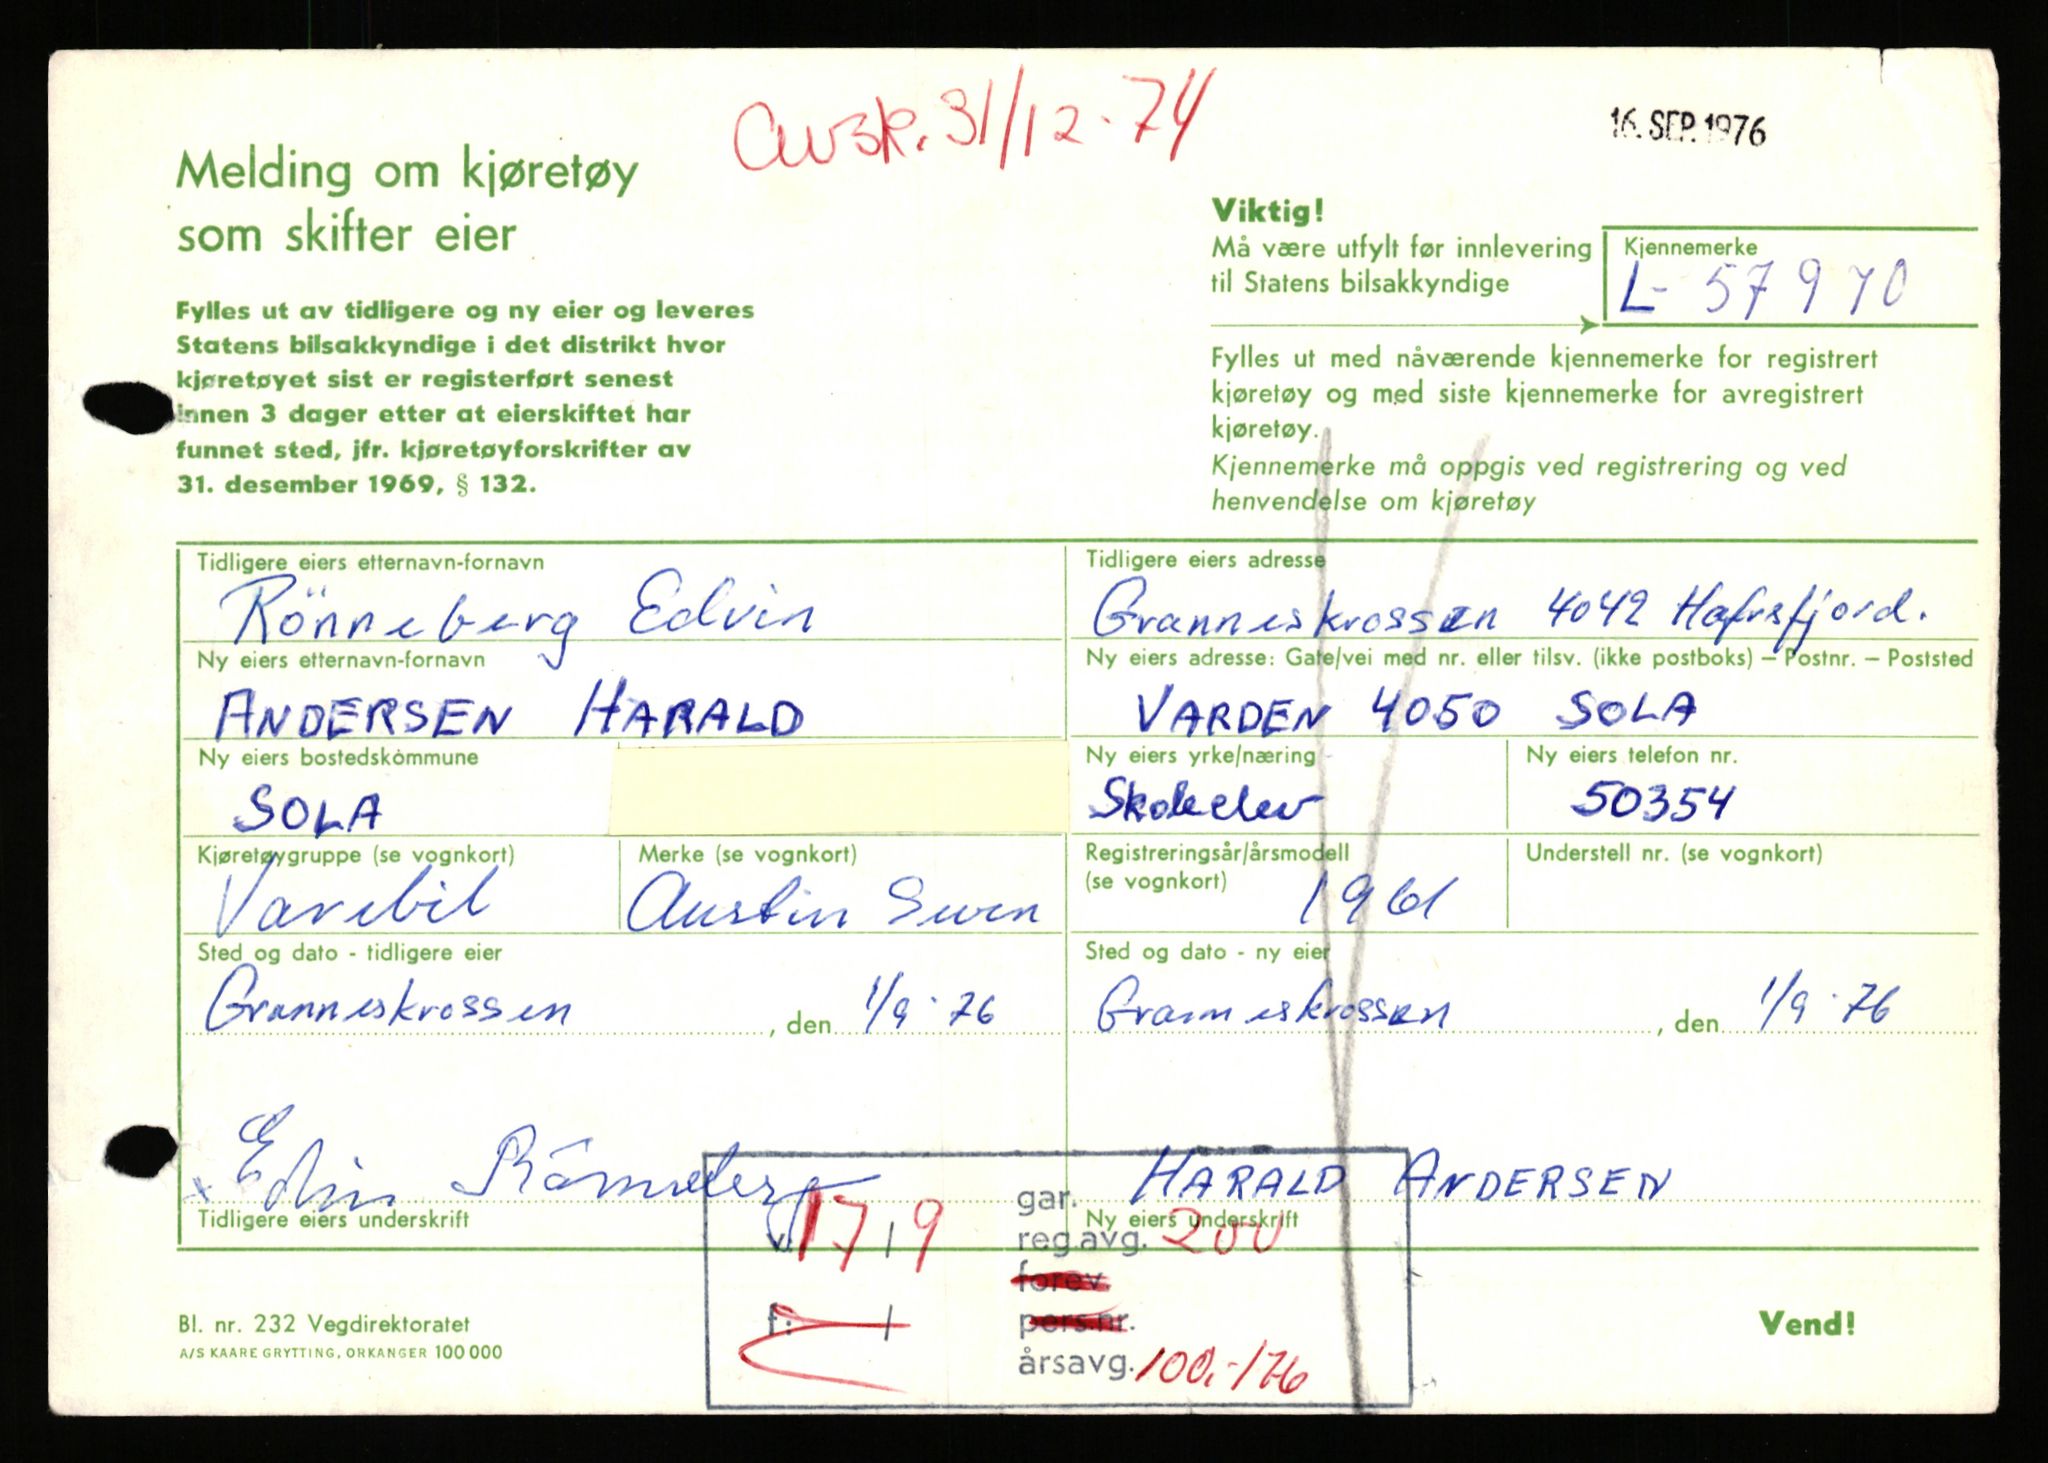 Avsk. 31/12-74
16. SEP. 1976
Melding om kjøretøy
som skifter eier
Viktig!
Må være utfylt før innlevering
til Statens bilsakkyndige
Kjennemerke
L- 57970
Fylles ut av tidligere og ny eier og leveres
Statens bilsakkyndige i det distrikt hvor
kjøretøyet sist er registerført senest
innen 3 dager etter at eierskiftet har
funnet sted, jfr. kjøretøyforskrifter av
31. desember 1969, § 132.
Fylles ut med nåværende kjennemerke for registrert
kjøretøy og med siste kjennemerke for avregistrert
kjøretøy.
Kjennemerke må oppgis ved registrering og ved
henvendelse om kjøretøy
Tidligere eiers etternavn-fornavn
Rönneberg Edvin
Tidligere eiers adresse
Granneskrossen 4042 Hafrsfjord.
Ny eiers etternavn-fornavn
ANDERSEN HARALD
Ny eiers adresse: Gate/vei med nr. eller tilsv. (ikke postboks) – Postnr. – Poststed
VARDEN 4050 SOLA
Ny eiers bostedskommune
SOLA
Ny eiers yrke/næring
Skoleelev
Ny eiers telefon nr.
50354
Kjøretøygruppe (se vognkort)
Varebil
Merke (se vognkort)
Austin Seven
Registreringsår/årsmodell
(se vognkort)
1961
Understell nr. (se vognkort)
Sted og dato - tidligere eier
Granneskrossen , den 1/9-76
Sted og dato - ny eier
Granneskrossen , den 1/9-76
x Edvin Rönneberg
Tidligere eiers underskrift
HARALD ANDERSEN
Ny eiers underskrift
v: 17/9
f: /
gar.
reg.avg. 200
forev.
pers.nr.
årsavg. 100,-/76
Bl. nr. 232 Vegdirektoratet
A/S KAARE GRYTTING, ORKANGER 100 000
Vend!